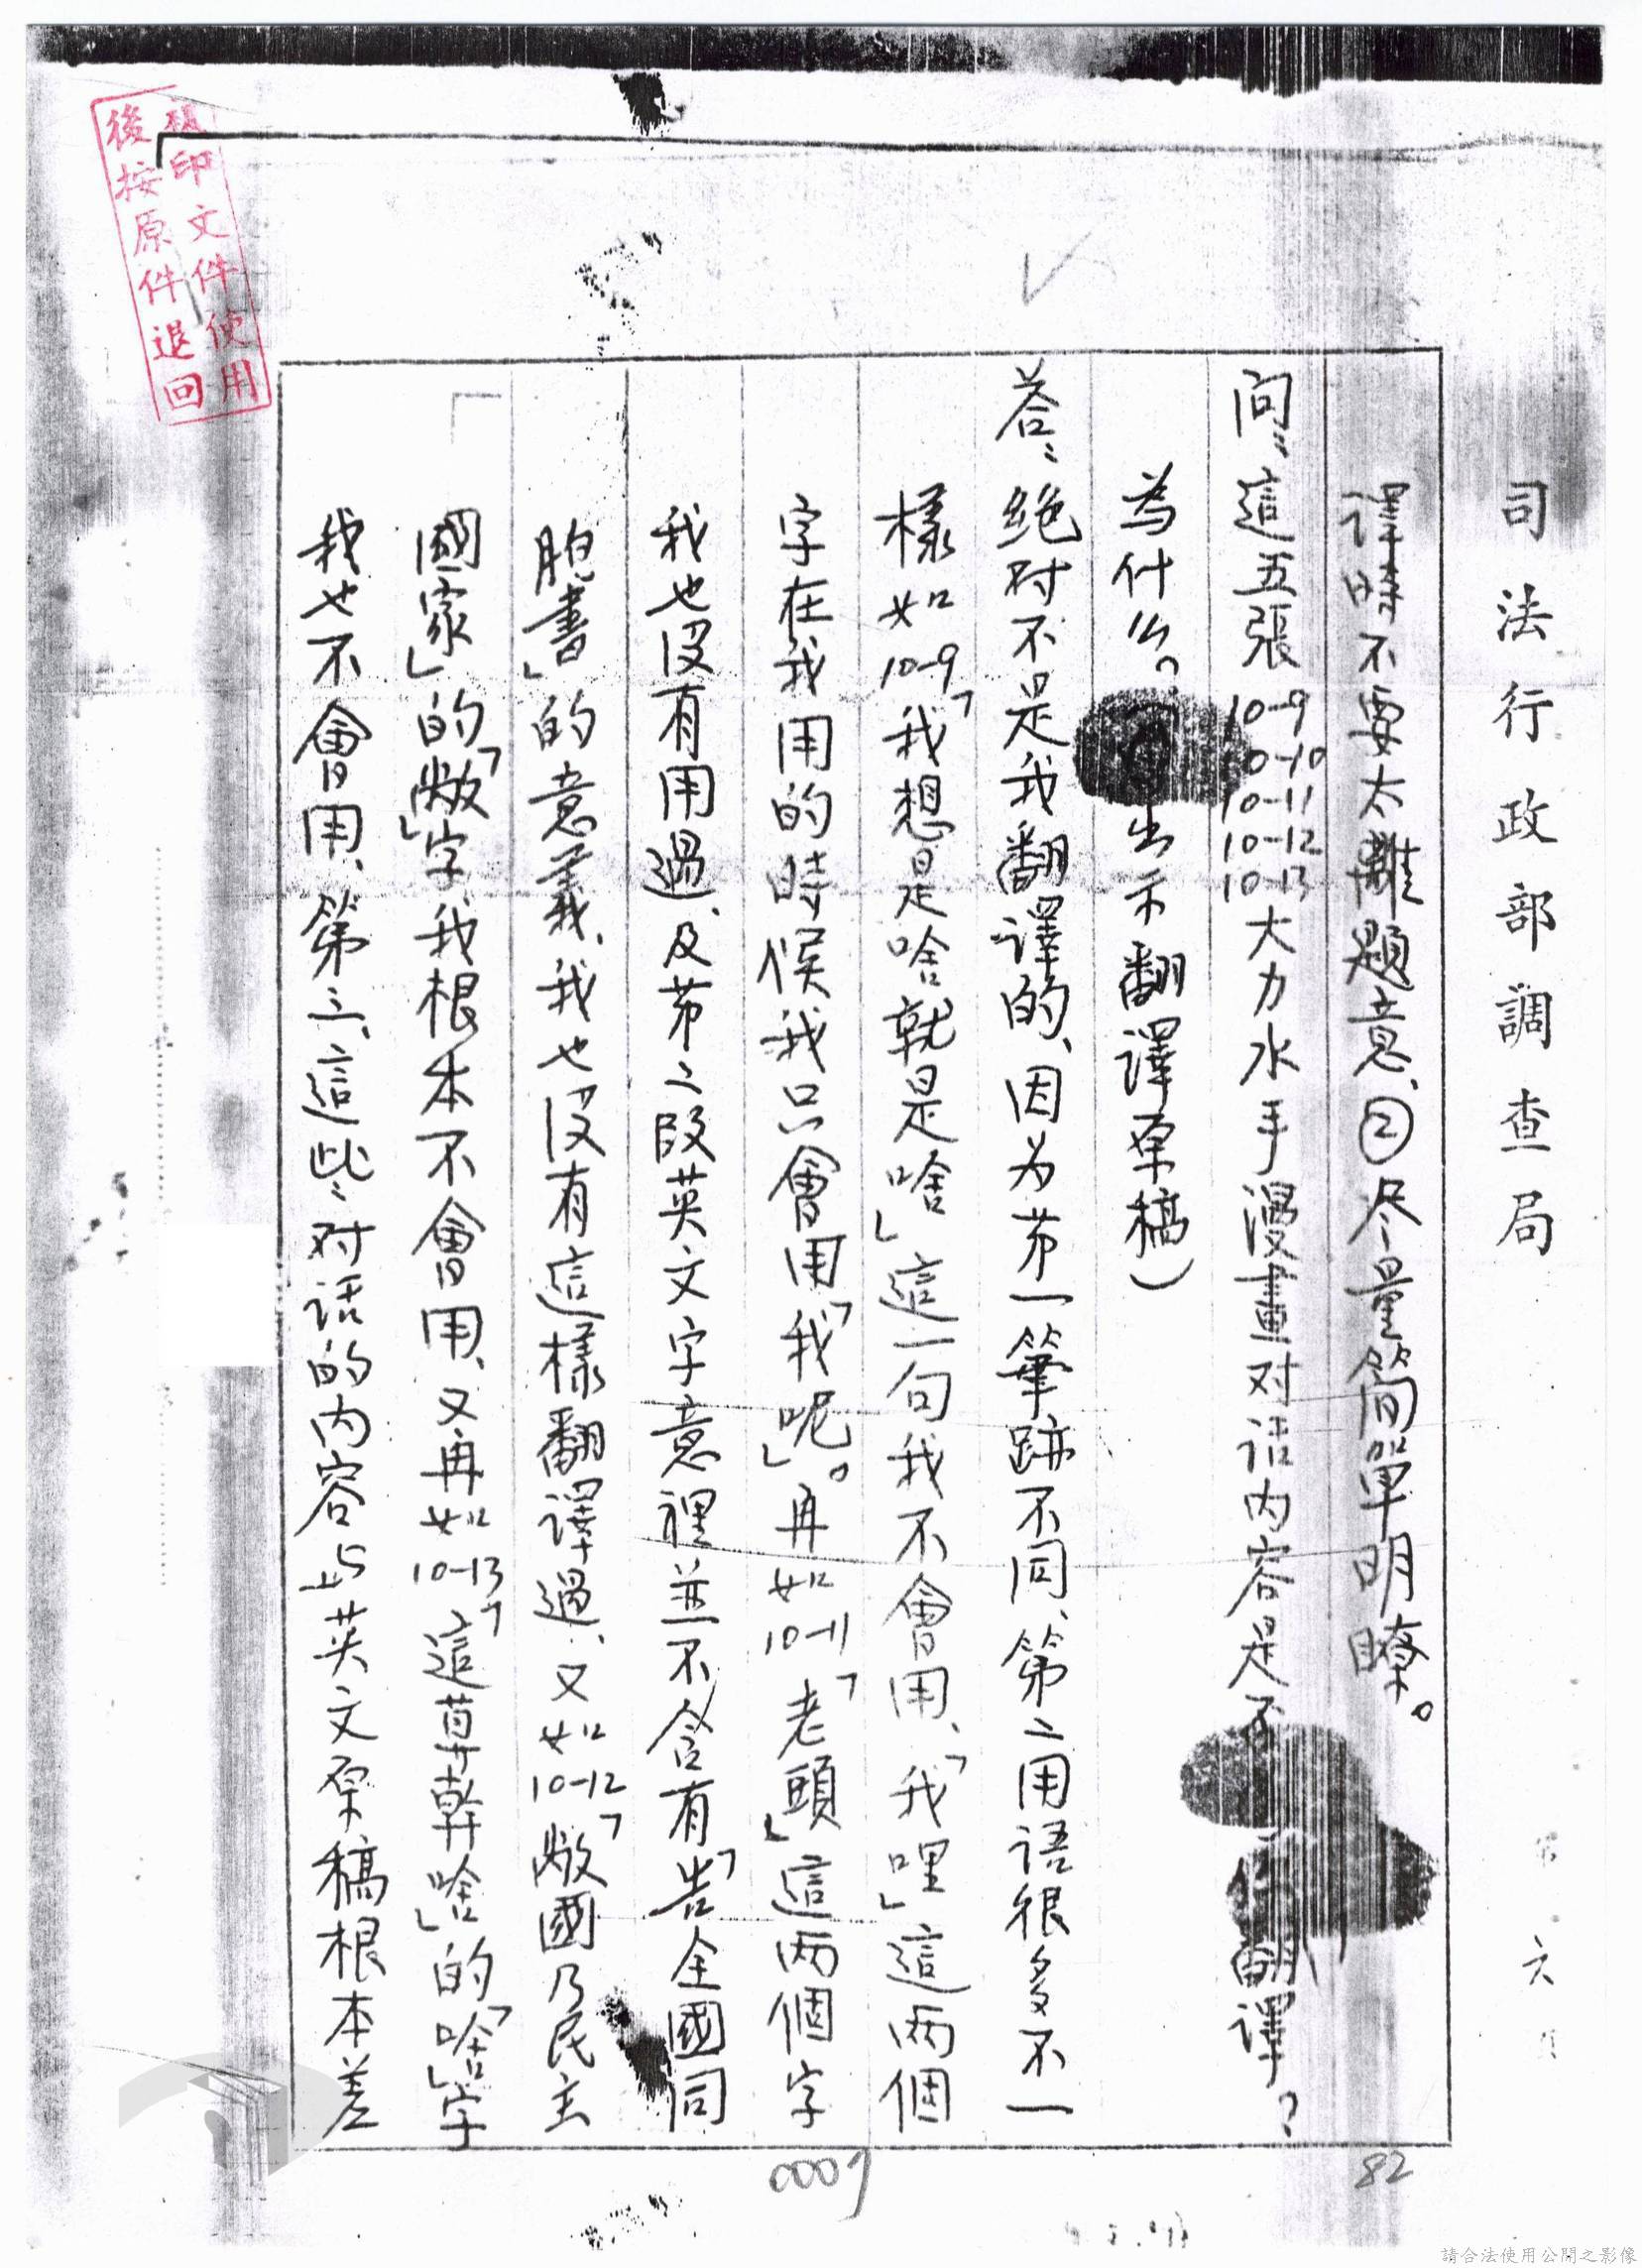 司法行政部調查局
譯時不要太離題意、②尽量简單明瞭。
问:這五張10-9 10-10 10-11 10-12 10-13大力水手漫畫对话内容是不翻譯?
為什么。出示翻譯原稿)
荅:绝对不是我翻譯的、因为苐一筆跡不同、第二用语很多不一
樣如10-9「我想是啥就是啥」這一句我不會用、「我哩」這两個
字在我用的時候我只會用「我呢」。再如10-11「老頭」這两個字
我也没有用過、及苐二段英文字意裡並不含有「告全國同
胞書」的意義、我也没有這樣翻譯過、又如10-12「敝國乃民主
國家」的「敝」字我根本不會用、又再如10-13「這草幹啥」的「啥」字
我也不會用、第三、這些:对话的内容与英文原稿根本差
六
印文件使用
後按原件退回
0007
82
請合法使用公開之影像